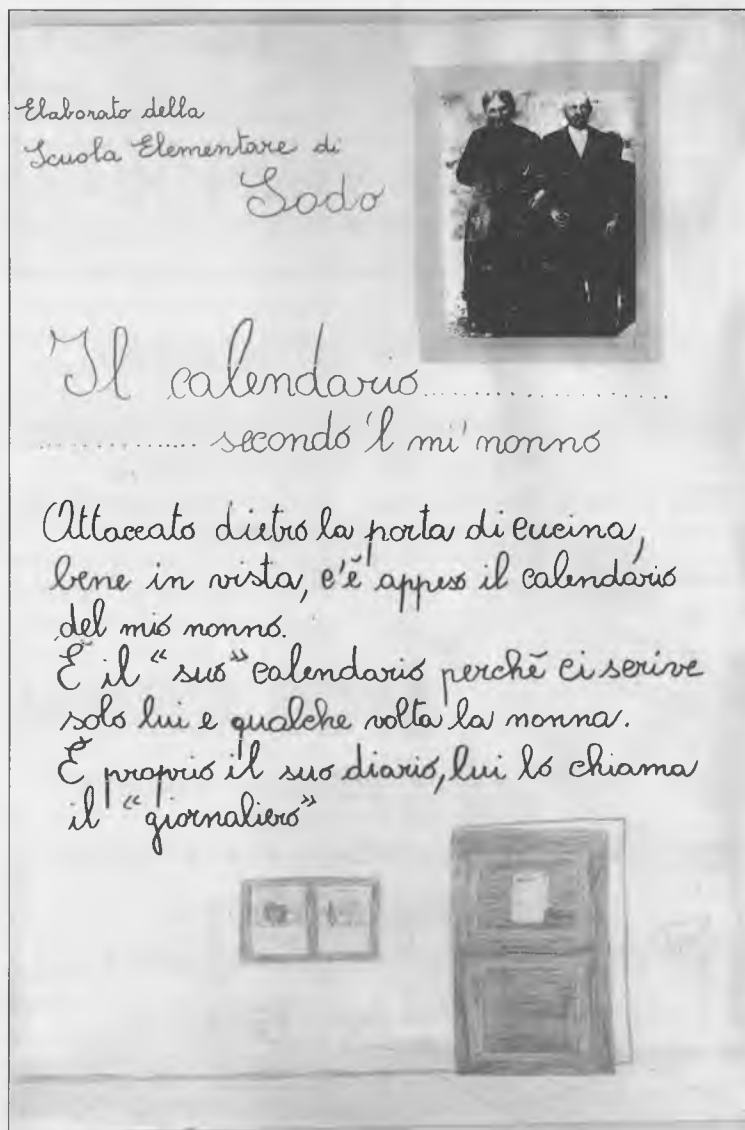 Elaborato della
Scuola Elementare di
Sodo
Il calendario....................
............... secondo 'l mi' nonno
Attaccato dietro la porta di cucina,
bene in vista, c'è appeso il calendario
del mio nonno.
È il “suo” calendario perchè ci scrive
solo lui e qualche volta la nonna.
È proprio il suo diario, lui lo chiama
il “giornaliero”